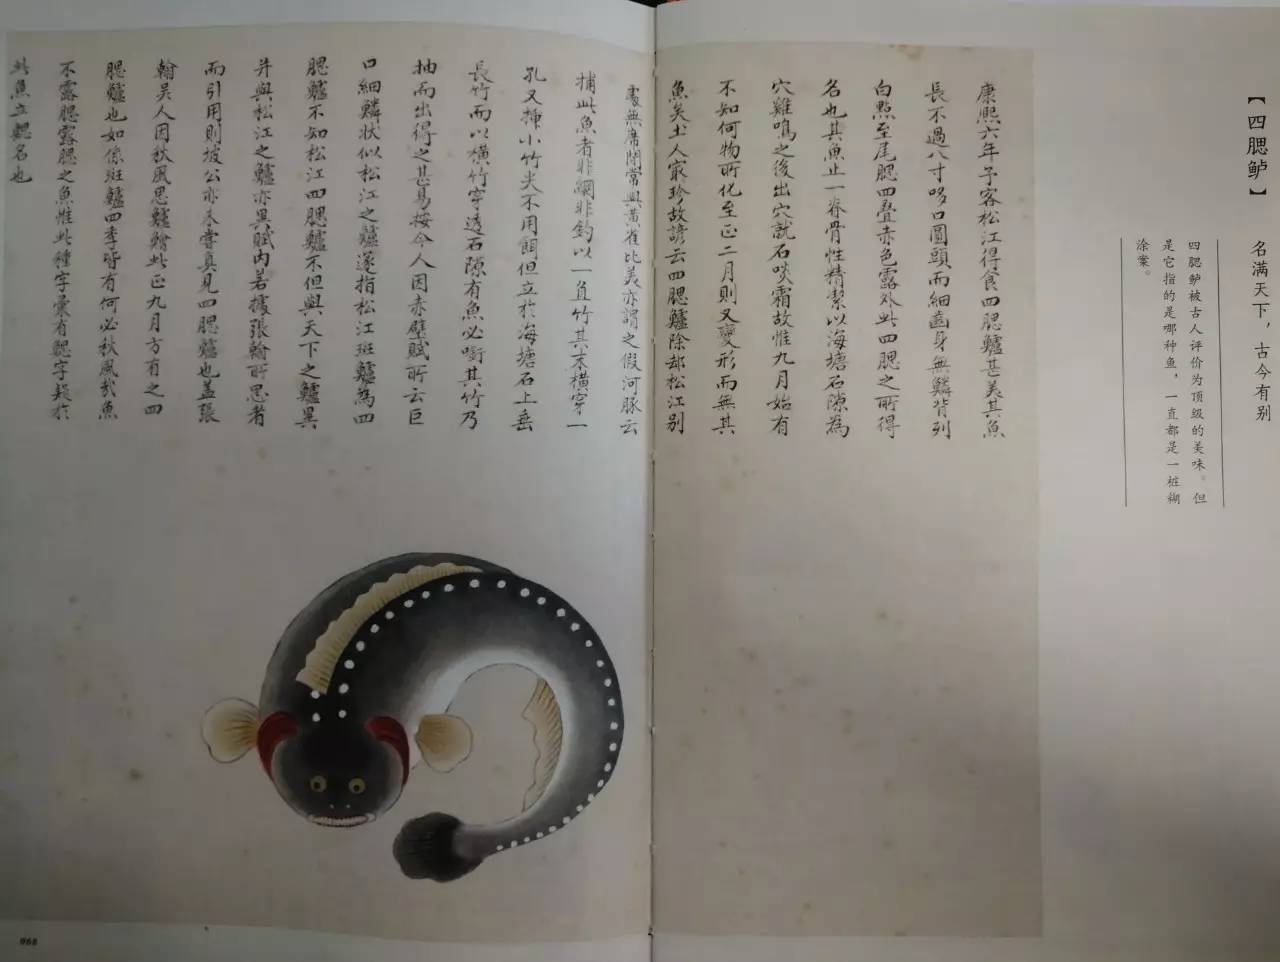 【四腮鲈】
名满天下，古今有别
四腮鲈被古人评价为顶级的美味。但
是它指的是哪种鱼，一直都是一桩糊
涂案。
康熙六年予客松江得食四腮鱸甚美其魚
長不過八寸哆口圓頭而細齒身無鱗背列
白點至尾腮四疊赤色露外此四腮之所得
名也其魚止一脊骨性精潔以海塘石隙為
穴雞鳴之後出穴就石啖霜故惟九月始有
不知何物所化至正二月則又變形而無其
魚矣土人家珍故諺云四腮鱸除却松江别
處無席閒常與黃雀比美亦謂之假河豚云
捕此魚者非網非釣以一直竹其末横穿一
孔又揷小竹尖不用餌但立於海塘石上垂
長竹而以横竹穿透石隙有魚必啣其竹乃
抽而出得之甚易按今人因赤壁賦所云巨
口細鱗狀似松江之鱸遂指松江斑鱸為四
腮鱸不知松江四腮鱸不但與天下之鱸異
并與松江之鱸亦異賦内若據張翰所思者
而引用則坡公亦未嘗真見四腮鱸也盖張
翰吳人因秋風思鱸鱠此正九月方有之四
腮鱸也如係斑鱸四季皆有何必秋風哉魚
不露腮露腮之魚惟此種字彙有鰓字疑於
此魚立鰓名也
068